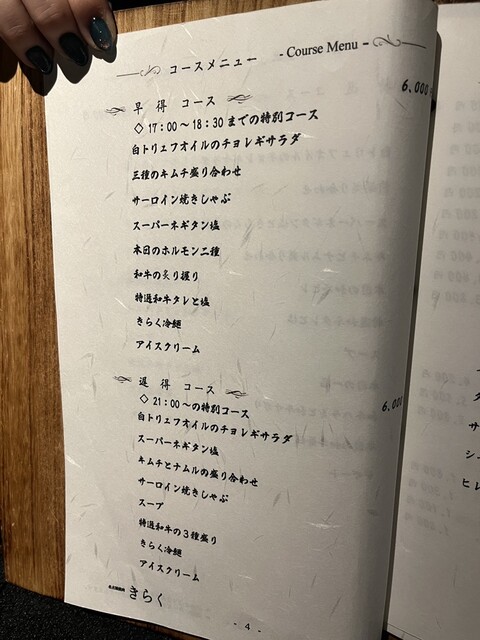 コースメニュー - Course Menu -
早得 コース 6,000
◇17:00～18:30までの特別コース
白トリュフオイルのチョレギサラダ
三種のキムチ盛り合わせ
サーロイン焼きしゃぶ
スーパーネギタン塩
本日のホルモン二種
和牛の炙り握り
特選和牛タレと塩
きらく冷麺
アイスクリーム
遅得 コース 6,000
◇21:00～の特別コース
白トリュフオイルのチョレギサラダ
スーパーネギタン塩
キムチとナムルの盛り合わせ
サーロイン焼きしゃぶ
スープ
特選和牛の3種盛り
きらく冷麺
アイスクリーム
きらく
- 4 -